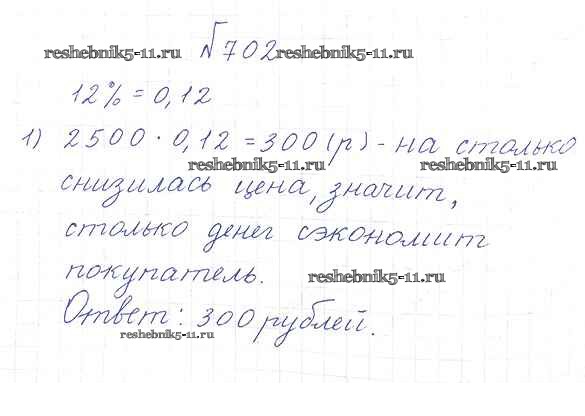 №702
reshebnik5-11.ru reshebnik5-11.ru
12% = 0,12
1) 2500 · 0,12 = 300 (р) - на столько
reshebnik5-11.ru reshebnik5-11.ru
снизилась цена, значит,
столько денег сэкономит
покупатель.
reshebnik5-11.ru
Ответ: 300 рублей.
reshebnik5-11.ru